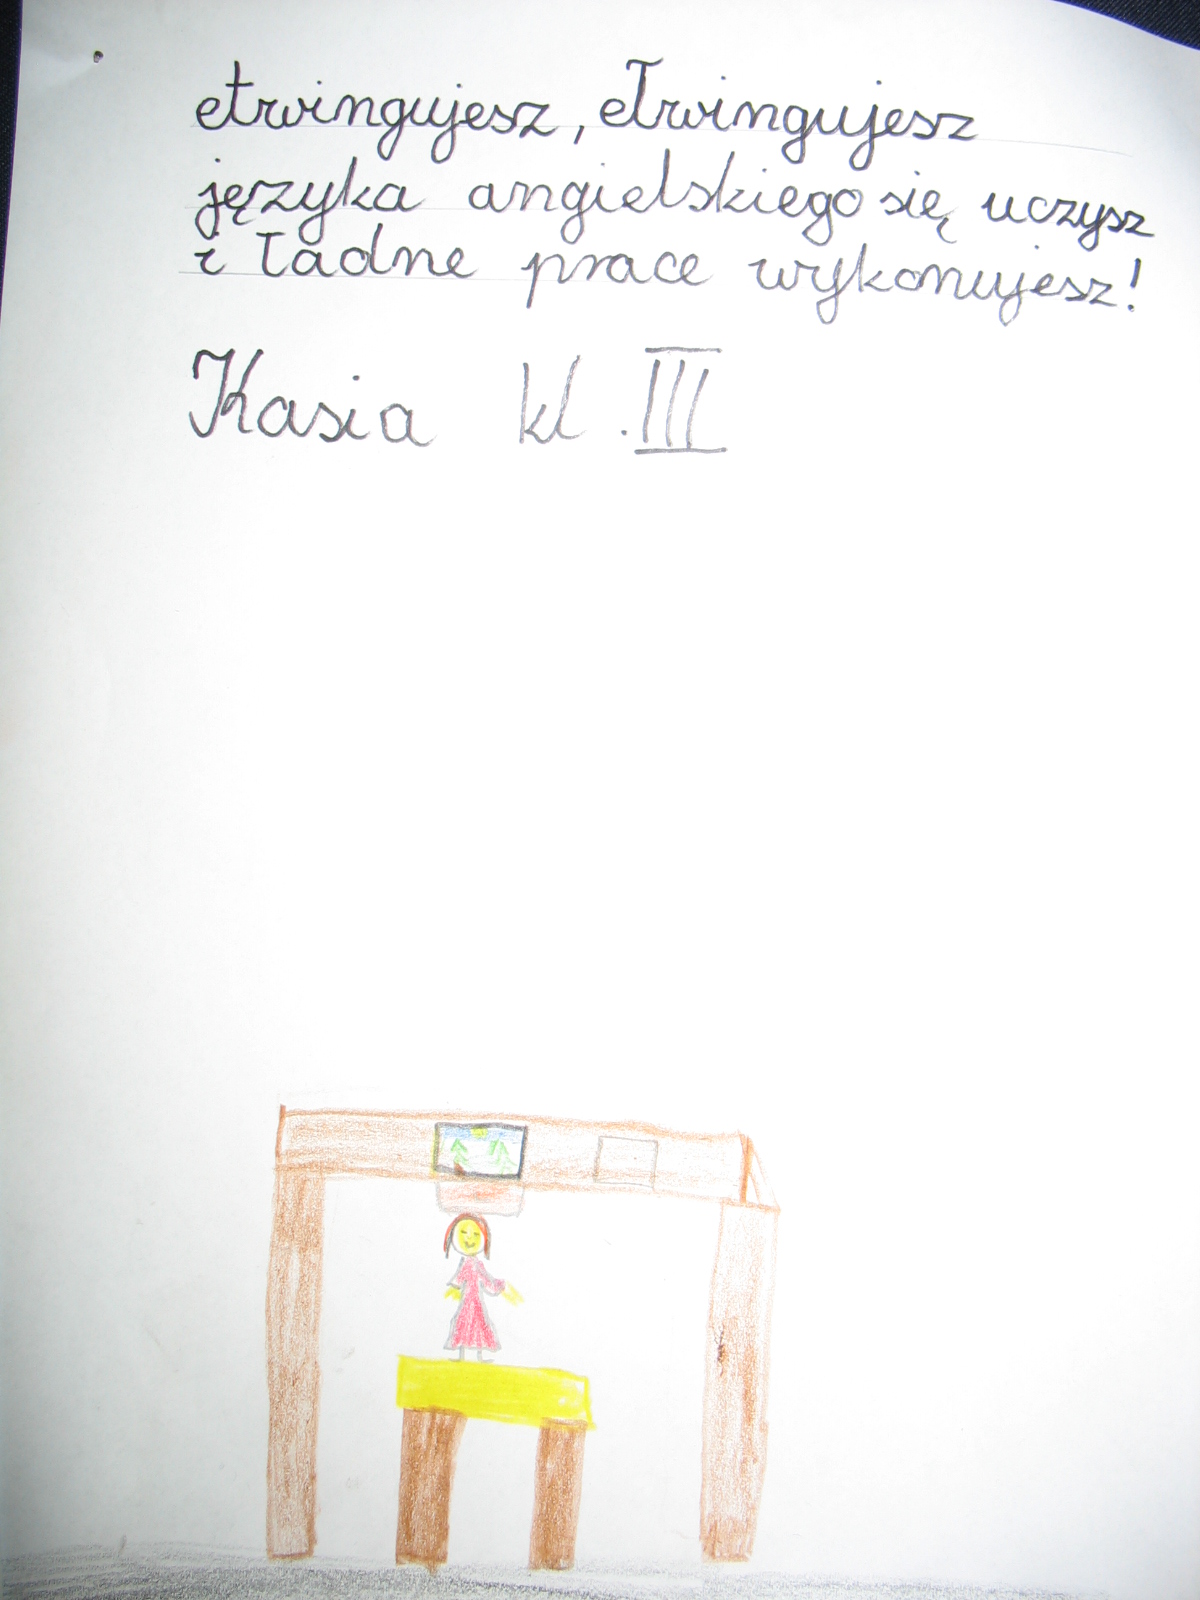 etwingujesz, eTwingujesz
języka angielskiego się uczysz
i ładne prace wykonujesz!
Kasia kl. III